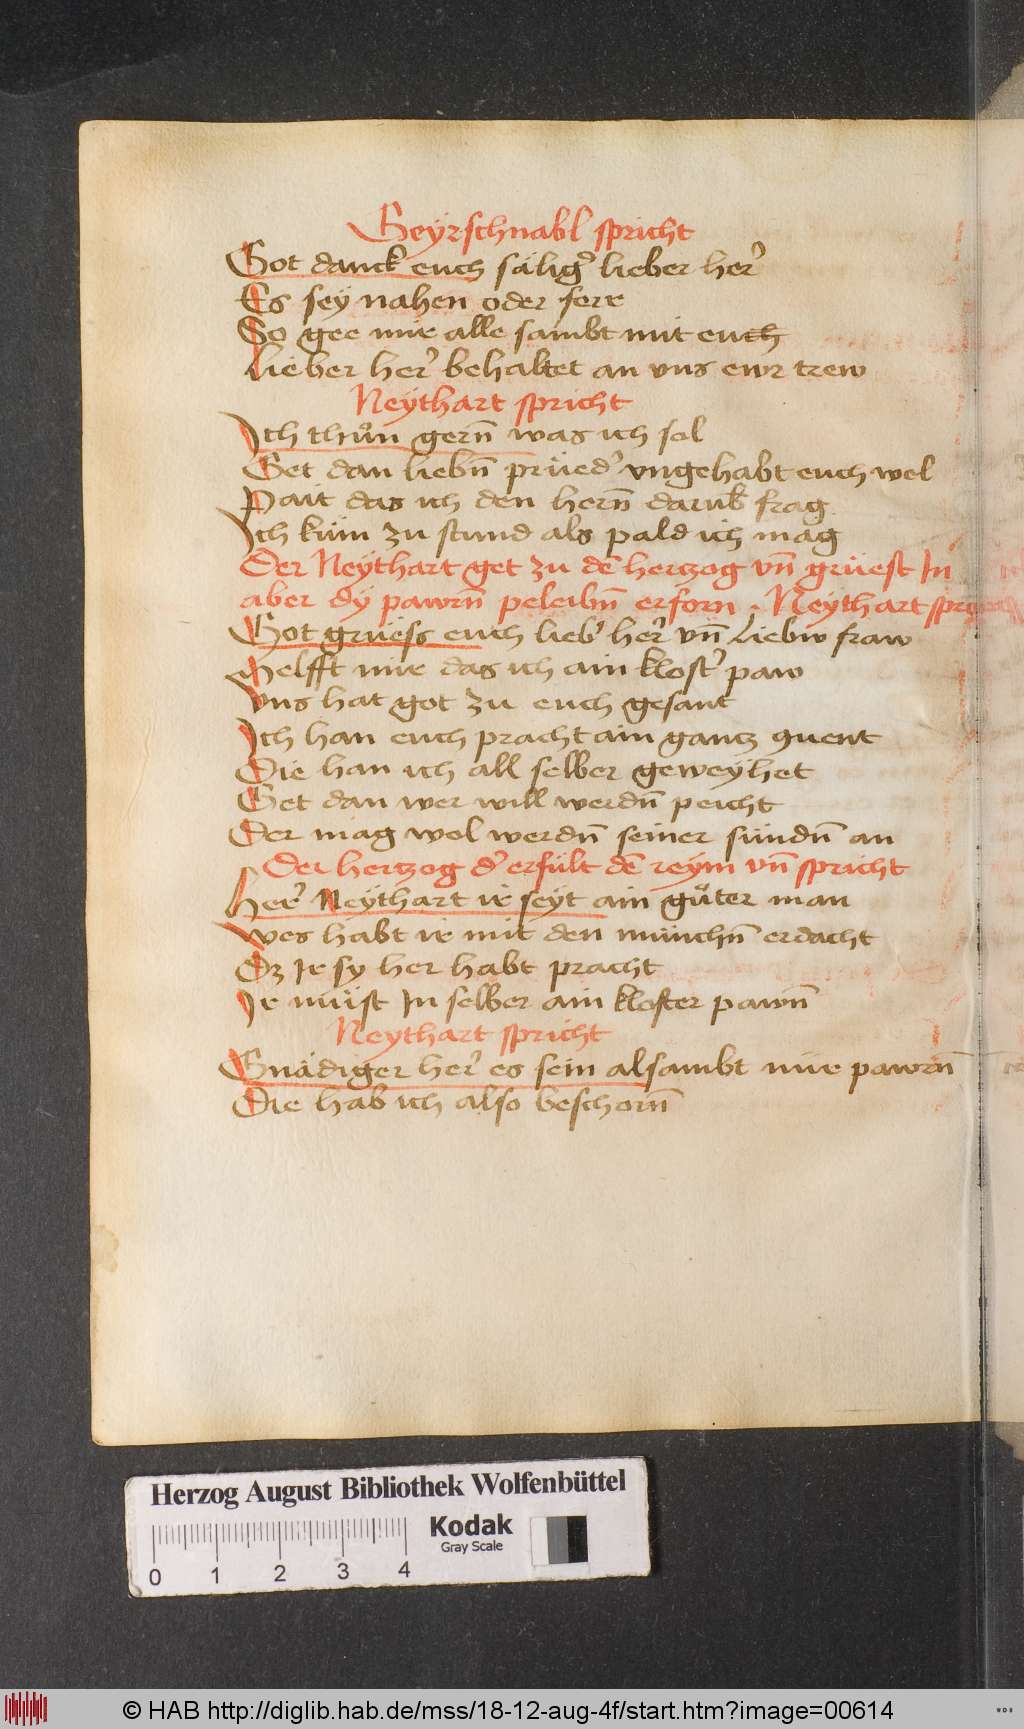 Geÿrschnabl spricht
Got danck euch sälig᷑ lieber her᷑
Es seÿ nahen oder ferr
So gee mir alle sambt mit euch
Lieber her᷑ behaltet an vns ewr trew
Neÿthart spricht
Ich thůn gern̄ was ich sol
Get dan liebn̄ prüed᷑ vngehabt euch wol
Pait das ich den hern̄ darub᷑ frag
Ich küm zu stund als pald ich mag
Der Neÿthart get zu dē hertzog vn̄ grüest In
aber dÿ pawrn̄ peleibn̄ erforn . Neÿthart
Got gruess euch lieb᷑ her᷑ vn̄ Liebw fraw
Helfft mir das ich ain klost᷑ paw
Vns hat got zu euch gesant
Ich han euch pracht ain gantz 9uent
Die han ich all selber geweÿhet
Get dan wer will werdn̄ peicht
Der mag wol werdn̄ seiner sündn̄ an
Der hertzog d᷑ erfült dē reÿm vn̄ spricht
Her᷑ Neÿthart ir seÿt ain gůter man
Wes habt ir mit den münchn̄ erdacht
Dz Ir sy her habt pracht
Ir müst In selber ain kloster pawn̄
Neythart spricht
Gnädiger her᷑ es sein alsambt mir pawrn̄
Die hab ich also beschorn̄
Herzog August Bibliothek Wolfenbüttel
Kodak
Gray Scale
0 1 2 3 4
© HAB http://diglib.hab.de/mss/18-12-aug-4f/start.htm?image=00614